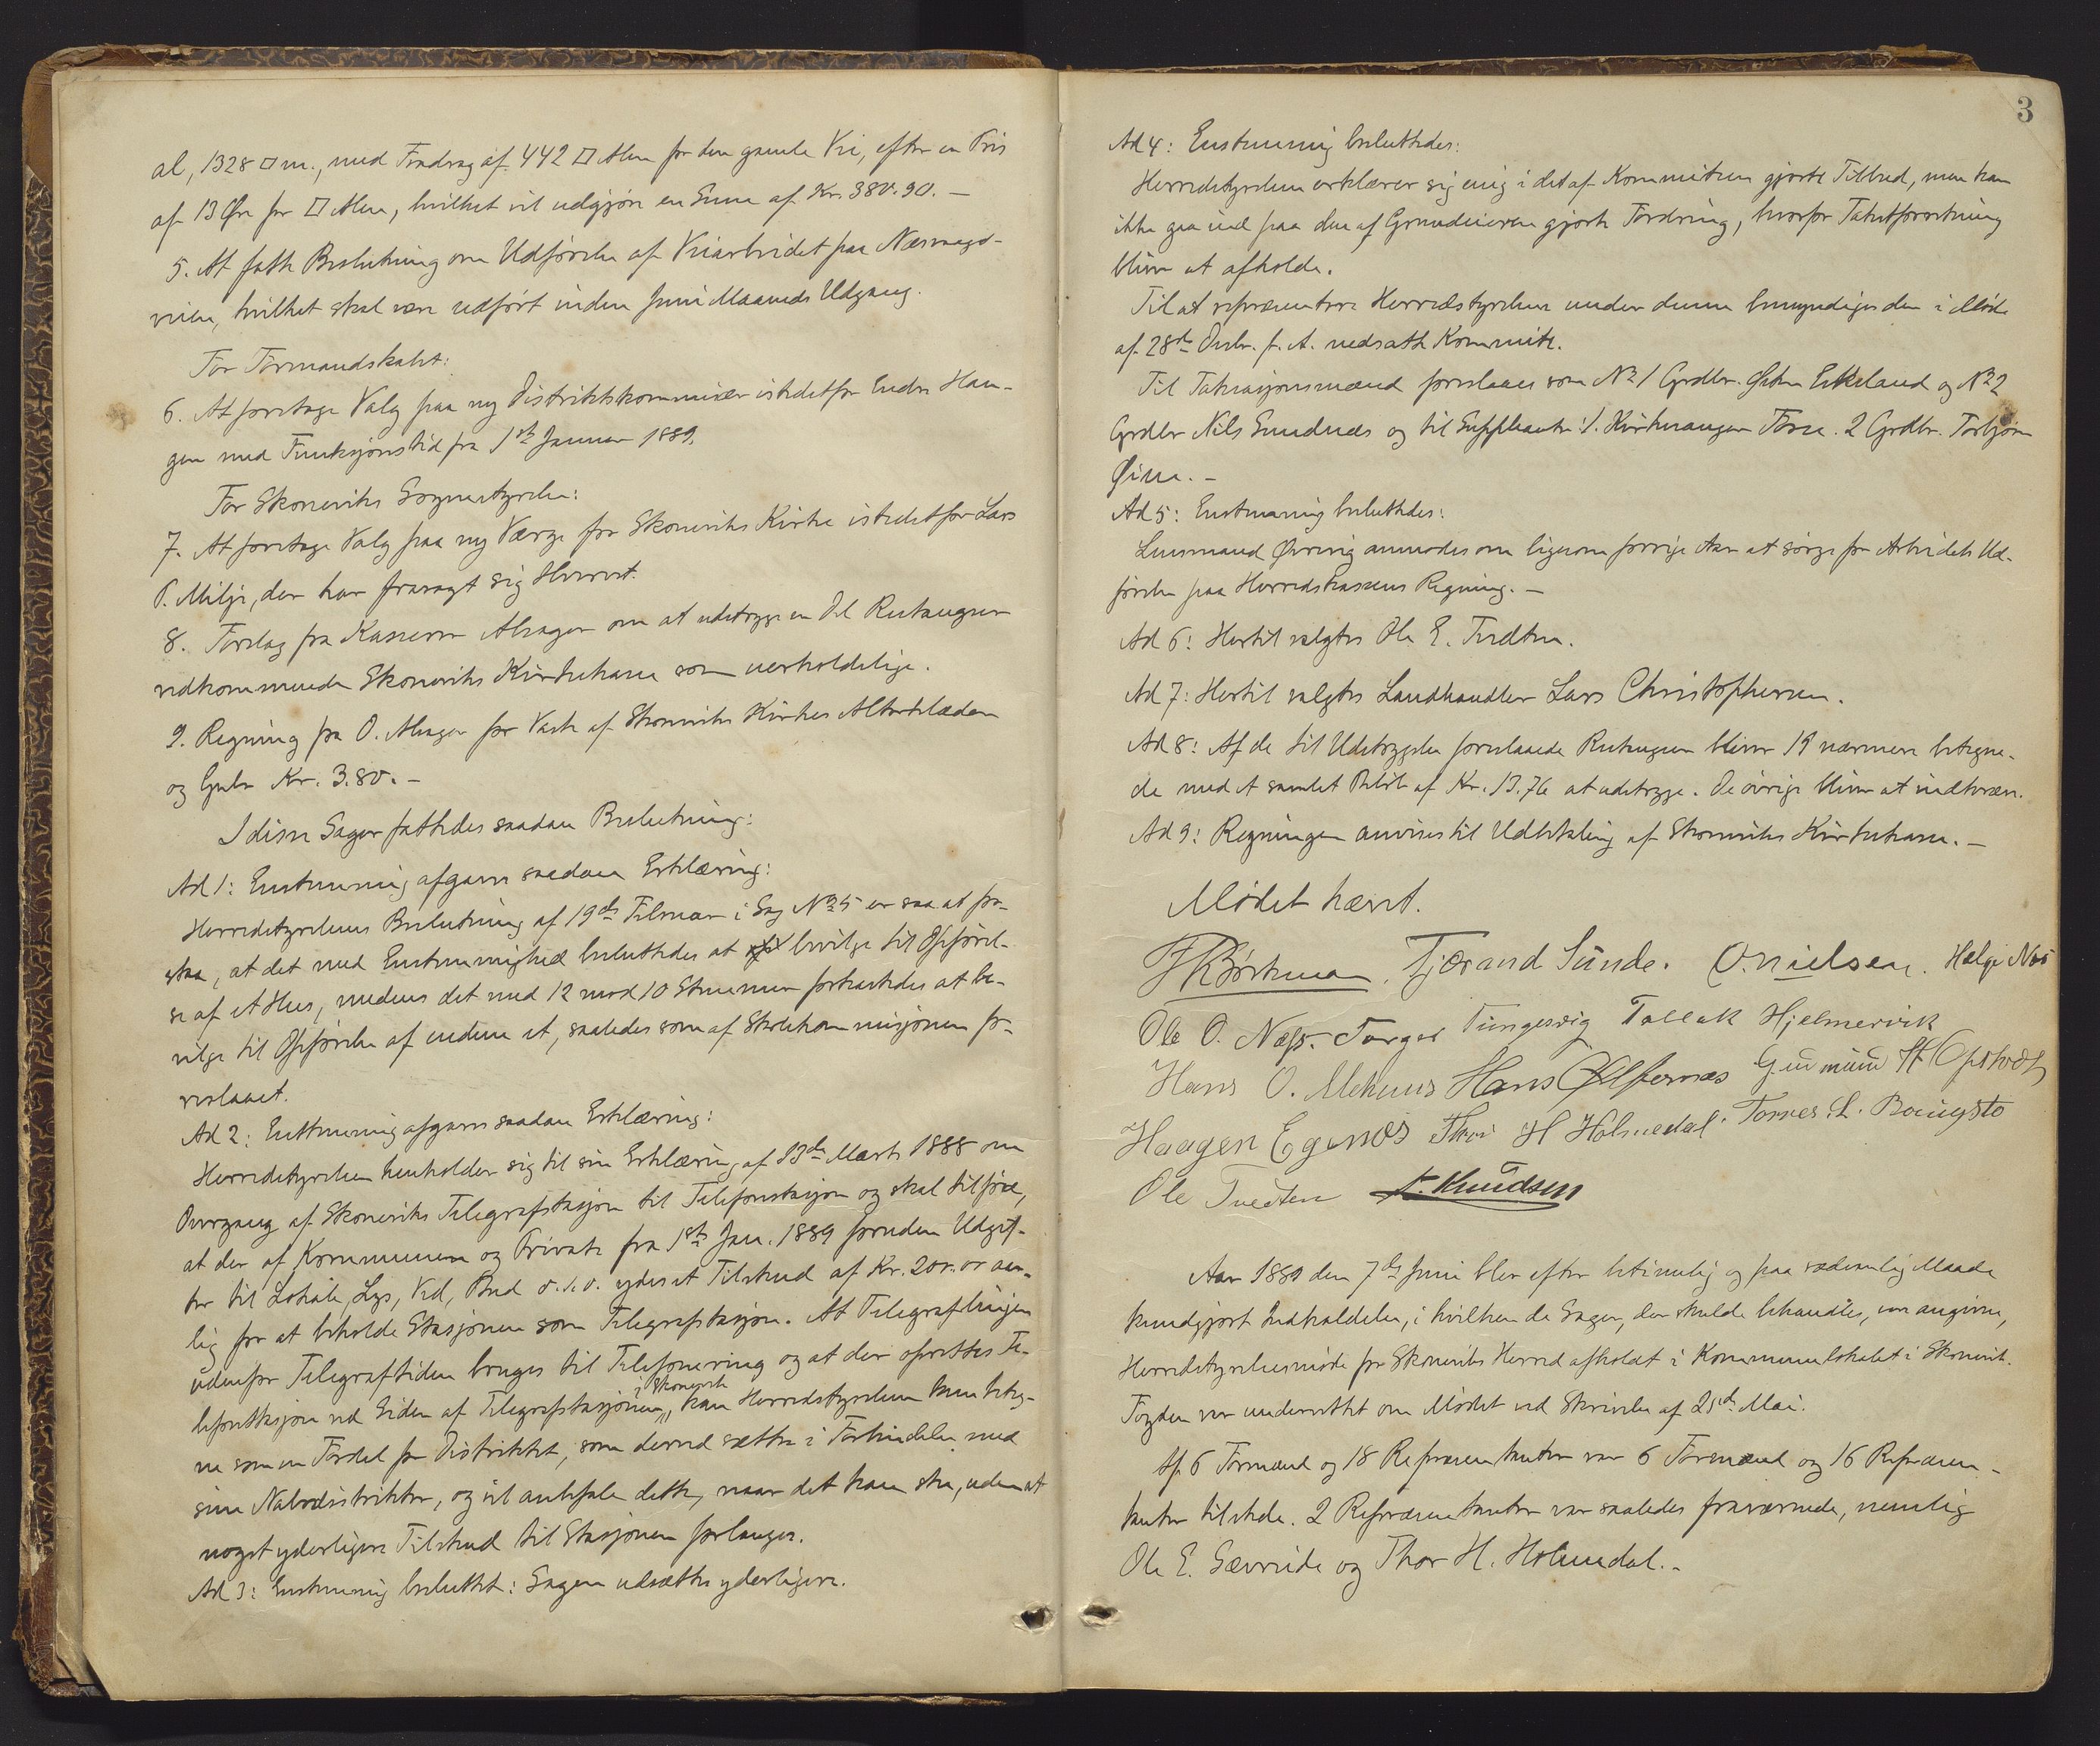 al, 1328 □ m., med Fradrag af 442 □ Alen for den gamle Vei, efter en Pris
af 13 Øre pr □ Alen, hvilket vil udgjøre en Sum af Kr. 380.90. —
5. At fatte Beslutning om Udførelse af Veiarbeidet paa Næsvaags-
veien, hvilket skal være udført inden Juni Maaneds Udgang.
For Formandskabet:
6. At foretage Valg paa ny Distriktskommisær istedetfor Endre Hau-
gen med Funksjonstid fra 1ste Januar 1889.
For Skoneviks Sognestyrelse:
7. At foretage Valg paa ny Værge for Skoneviks Kirke istedetfor Lars
P. Milje, der har frasagt sig Hvervet.
8. Forslag fra Kasserer Alsager om at udstryge en Del Restanser
vedkommende Skoneviks Kirkekasse som uerholdelige.
9. Regning fra O. Alsager for Vask af Skoneviks Kirkes Alterklæder
og Gulv Kr. 3.80. —
I disse Sager fattedes saadan Beslutning:
Ad 1: Enstemmig afgaves saadan Erklæring:
Herredstyrelsens Beslutning af 19de Februar i Sag No 5 er saa at for-
staa, at det med Enstemmighed besluttedes at bevilge til Opførel-
se af et Hus, medens det med 12 mod 10 Stemmer forkastedes at be-
vilge til Opførelse af endnu et, saaledes som af Skolekommisjonen fo-
reslaaet.
Ad 2: Enstemmig afgaves saadan Erklæring:
Herredstyrelsen henholder sig til sin Erklæring af 13de Marts 1888 om
Overgang af Skoneviks Telegrafstasjon til Telefonstasjon og skal tilføie,
at der af Kommunen og Private fra 1ste Jan. 1889 foruden Udgif-
ter til Lokale, Lys, Ved, Bud o.s.v. ydes et Tilskud af Kr. 200.00 aar-
lig for at beholde Stasjonen som Telegrafstasjon. At Telegraflinjen
udenfor Telegraftiden bruges til Telefonering og at der oprettes Te-
lefonstasjon ved Siden af Telegrafstasjonen i Skonevik, kan Herredstyrelsen kun beteg-
ne som en Fordel for Distriktet, som derved sættes i Forbindelse med
sine Nabodistrikter, og vil anbefale dette, naar det kan ske, uden at
noget yderligere Tilskud til Stasjonen forlanges.
Ad 3: Enstemmig besluttet: Sagen udsættes yderligere.
3
Ad 4: Enstemmig besluttedes:
Herredstyrelsen erklærer sig enig i det af Kommiteen gjorte Tilbud, men kan
ikke gaa ind paa den af Grundeieren gjorte Fordring, hvorfor Takstforretning
bliver at afholde.
Til at repræsentere Herredstyrelsen under denne bemyndiges den i Møde
af 28de Decbr. f. A. nedsatte Kommite.
Til Taksasjonsmænd foreslaaes som No 1 Grdbr. Østen Eikeland og No 2
Grdbr Nils Sundnæs og til Suppleanter: 1. Kirkesanger Tarre. 2 Grdbr. Torbjørn
Øine. —
Ad 5: Enstemmig besluttedes:
Lensmand Øvrevig anmodes om ligesom forrige Aar at sørge for Arbeidets Ud-
førelse paa Herredskassens Regning. —
Ad 6: Hertil valgtes Ole E. Tvedten.
Ad 7: Hertil valgtes Landhandler Lars Christophersen.
Ad 8: Af de til Udstrygelse foreslaaede Restanser bliver 19 nærmere betegne-
de med et samlet Beløb af Kr. 13.76 at udstryge. De øvrige bliver at inddrive.
Ad 9: Regningen anvises til Udbetaling af Skoneviks Kirkekasse. —
Mødet hævet.
Tjærand Sunde. O. Nielsen. Helge Næs
Ole O. Næss. Torger Tungesvig Tallak Hjelmervik
Hans O. Mehuus Hans Ølfernæs Gudmund H Opstvedt
Haagen Egenæs Thor H Holmedal. Tornes L. Baugsto
Ole Tvedten A. Knudsen
Aar 1889 den 7de Juni blev efter betimelig og paa sædvanlig Maade
kundgjort Indkaldelse, i hvilken de Sager, der skulde behandles, var angivne,
Herredstyrelsesmøde for Skoneviks Herred afholdt i Kommunelokalet i Skonevik.
Fogden var underrettet om Mødet ved Skrivelse af 25de Mai.
Af 6 Formænd og 18 Repræsentanter var 6 Formænd og 16 Repræsen-
tanter tilstede. 2 Repræsentanter var saaledes fraværende, nemlig
Ole E. Sævreide og Thor H. Holmedal. —